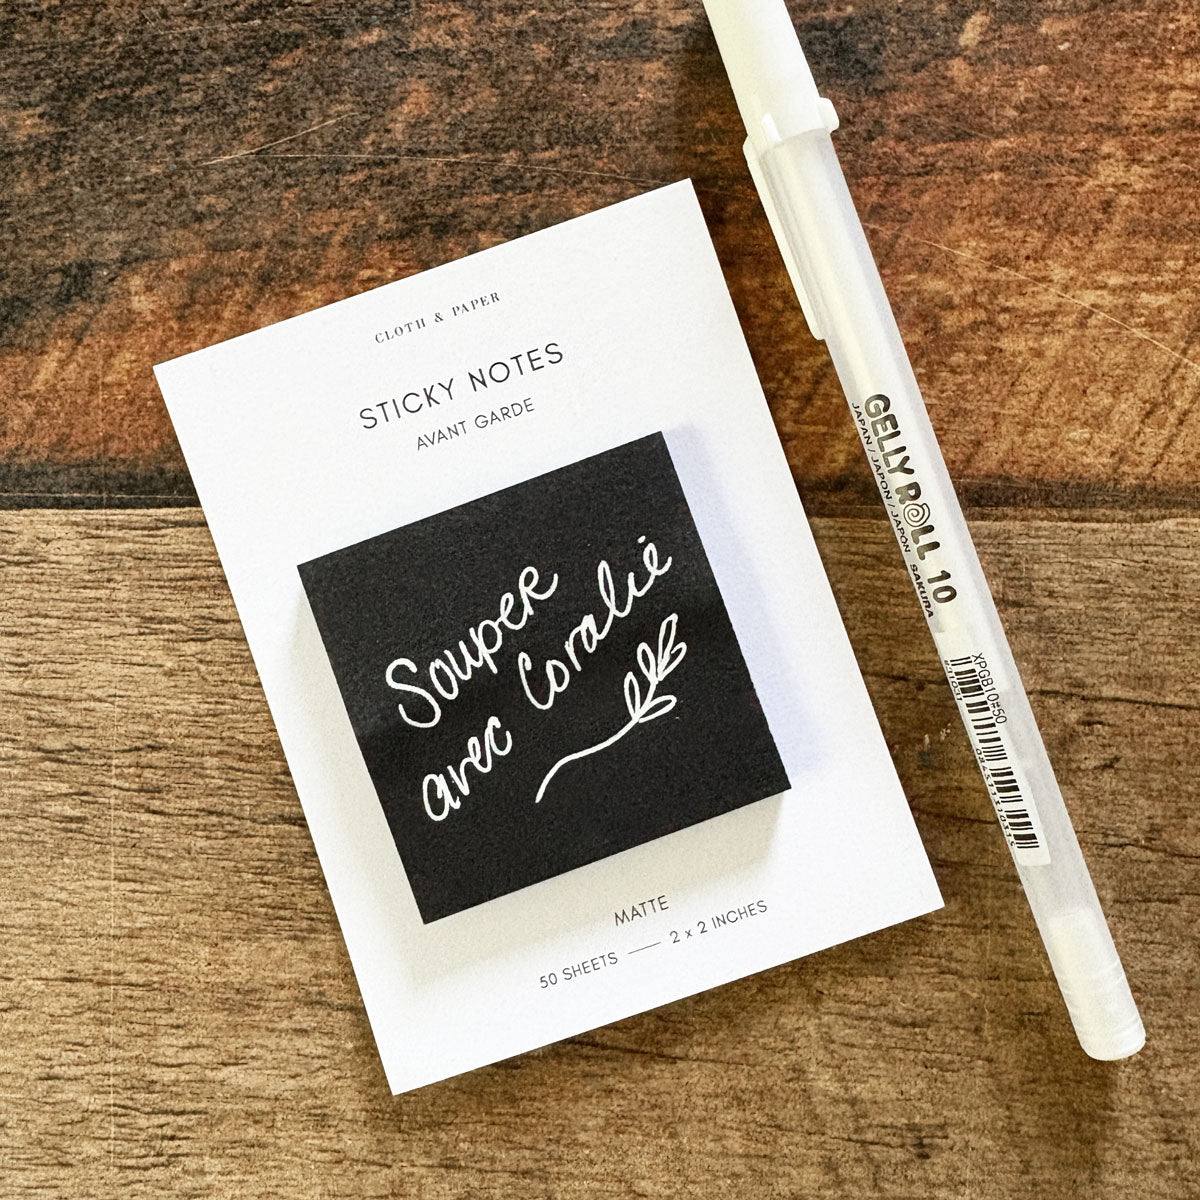 CLOTH & PAPER
STICKY NOTES
AVANT GARDE
Souper
avec Coralie
MATTE
50 SHEETS — 2 x 2 INCHES
GELLY ROLL 10
JAPAN / JAPON / JAPON SAKURA
XPGB10#50